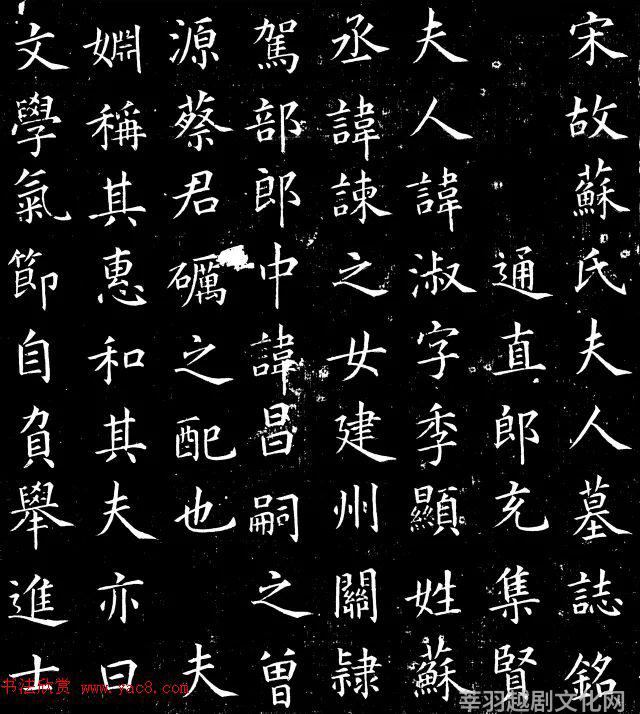 宋故蘇氏夫人墓誌銘
通直郎充集賢
夫人諱淑字季顯姓蘇
丞諱諫之女建州關隸
駕部郎中諱昌嗣之曾
源蔡君礪之配也 夫
婣稱其惠和其夫亦曰
文學氣節自負舉進士
书法欣赏 www.yac8.com
莘羽越剧文化网